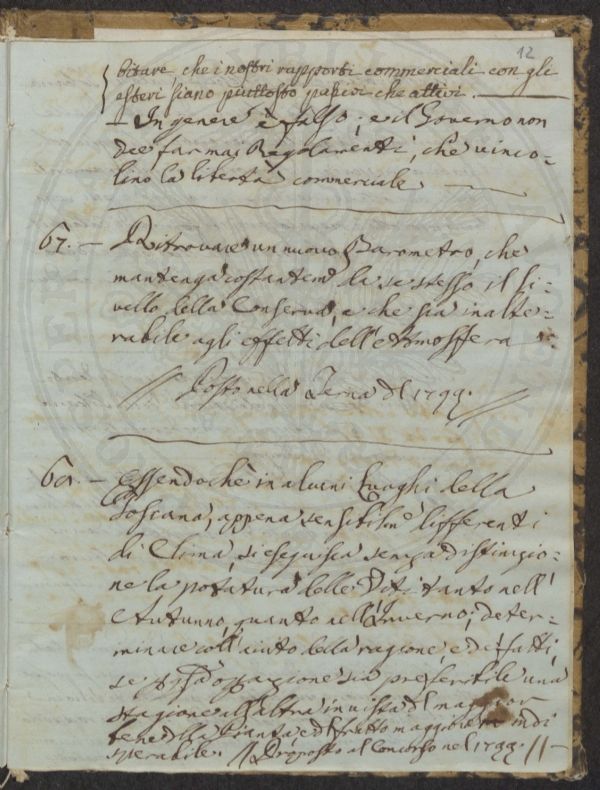 12
bitare, che i nostri rapporti commerciali con gli
esteri siano piuttosto passivi che attivi.
- In genere è falso; e il Governo non
dee far mai Regolamenti, che vinco=
lino la libertà commerciale
67. - Ritrovare un nuovo Barometro, che
mantenga costantemte da se stesso il li=
vello della Conserva, e che sia inalte=
rabile agli effetti dell'Atmosfera
// Posto nella Terna del 1799. //
68. - Essendochè in alcuni Luoghi della
Toscana, appena sensibilme differenti
di Clima, si eseguisca senza distinzio=
ne la potatura delle Viti tanto nell'
Autunno, quanto nell'Inverno; deter=
minare coll'aiuto della ragione, e de fatti,
se operazione sia preferibile una
stagione all'altra in vista del maggior
bene della Pianta e del frutto maggiore
sperabile. // Proposto al Concorso nel 1799. // -